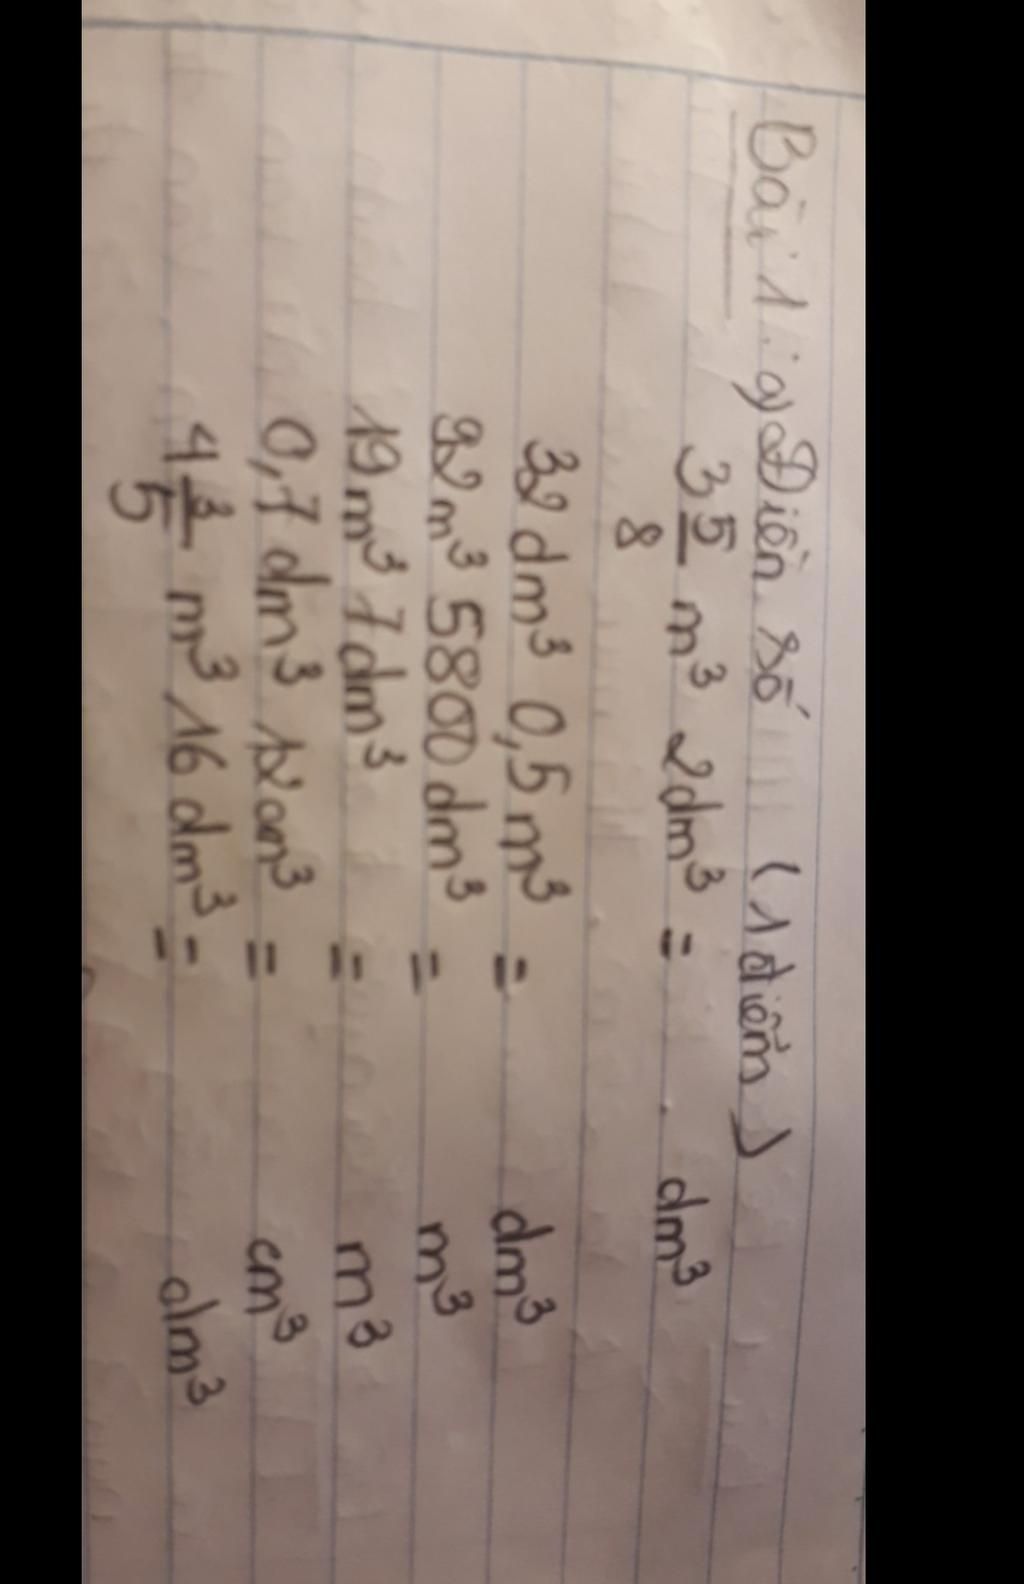 Bài 1: a) Điền số (1 điểm)
3 5/8 m³ 2dm³ = dm³
32 dm³ 0,5 m³ = dm³
92m³ 5800 dm³ = m³
19m³ 7dm³ = m³
0,7 dm³ 12cm³ = cm³
4 3/5 m³ 16 dm³ = dm³